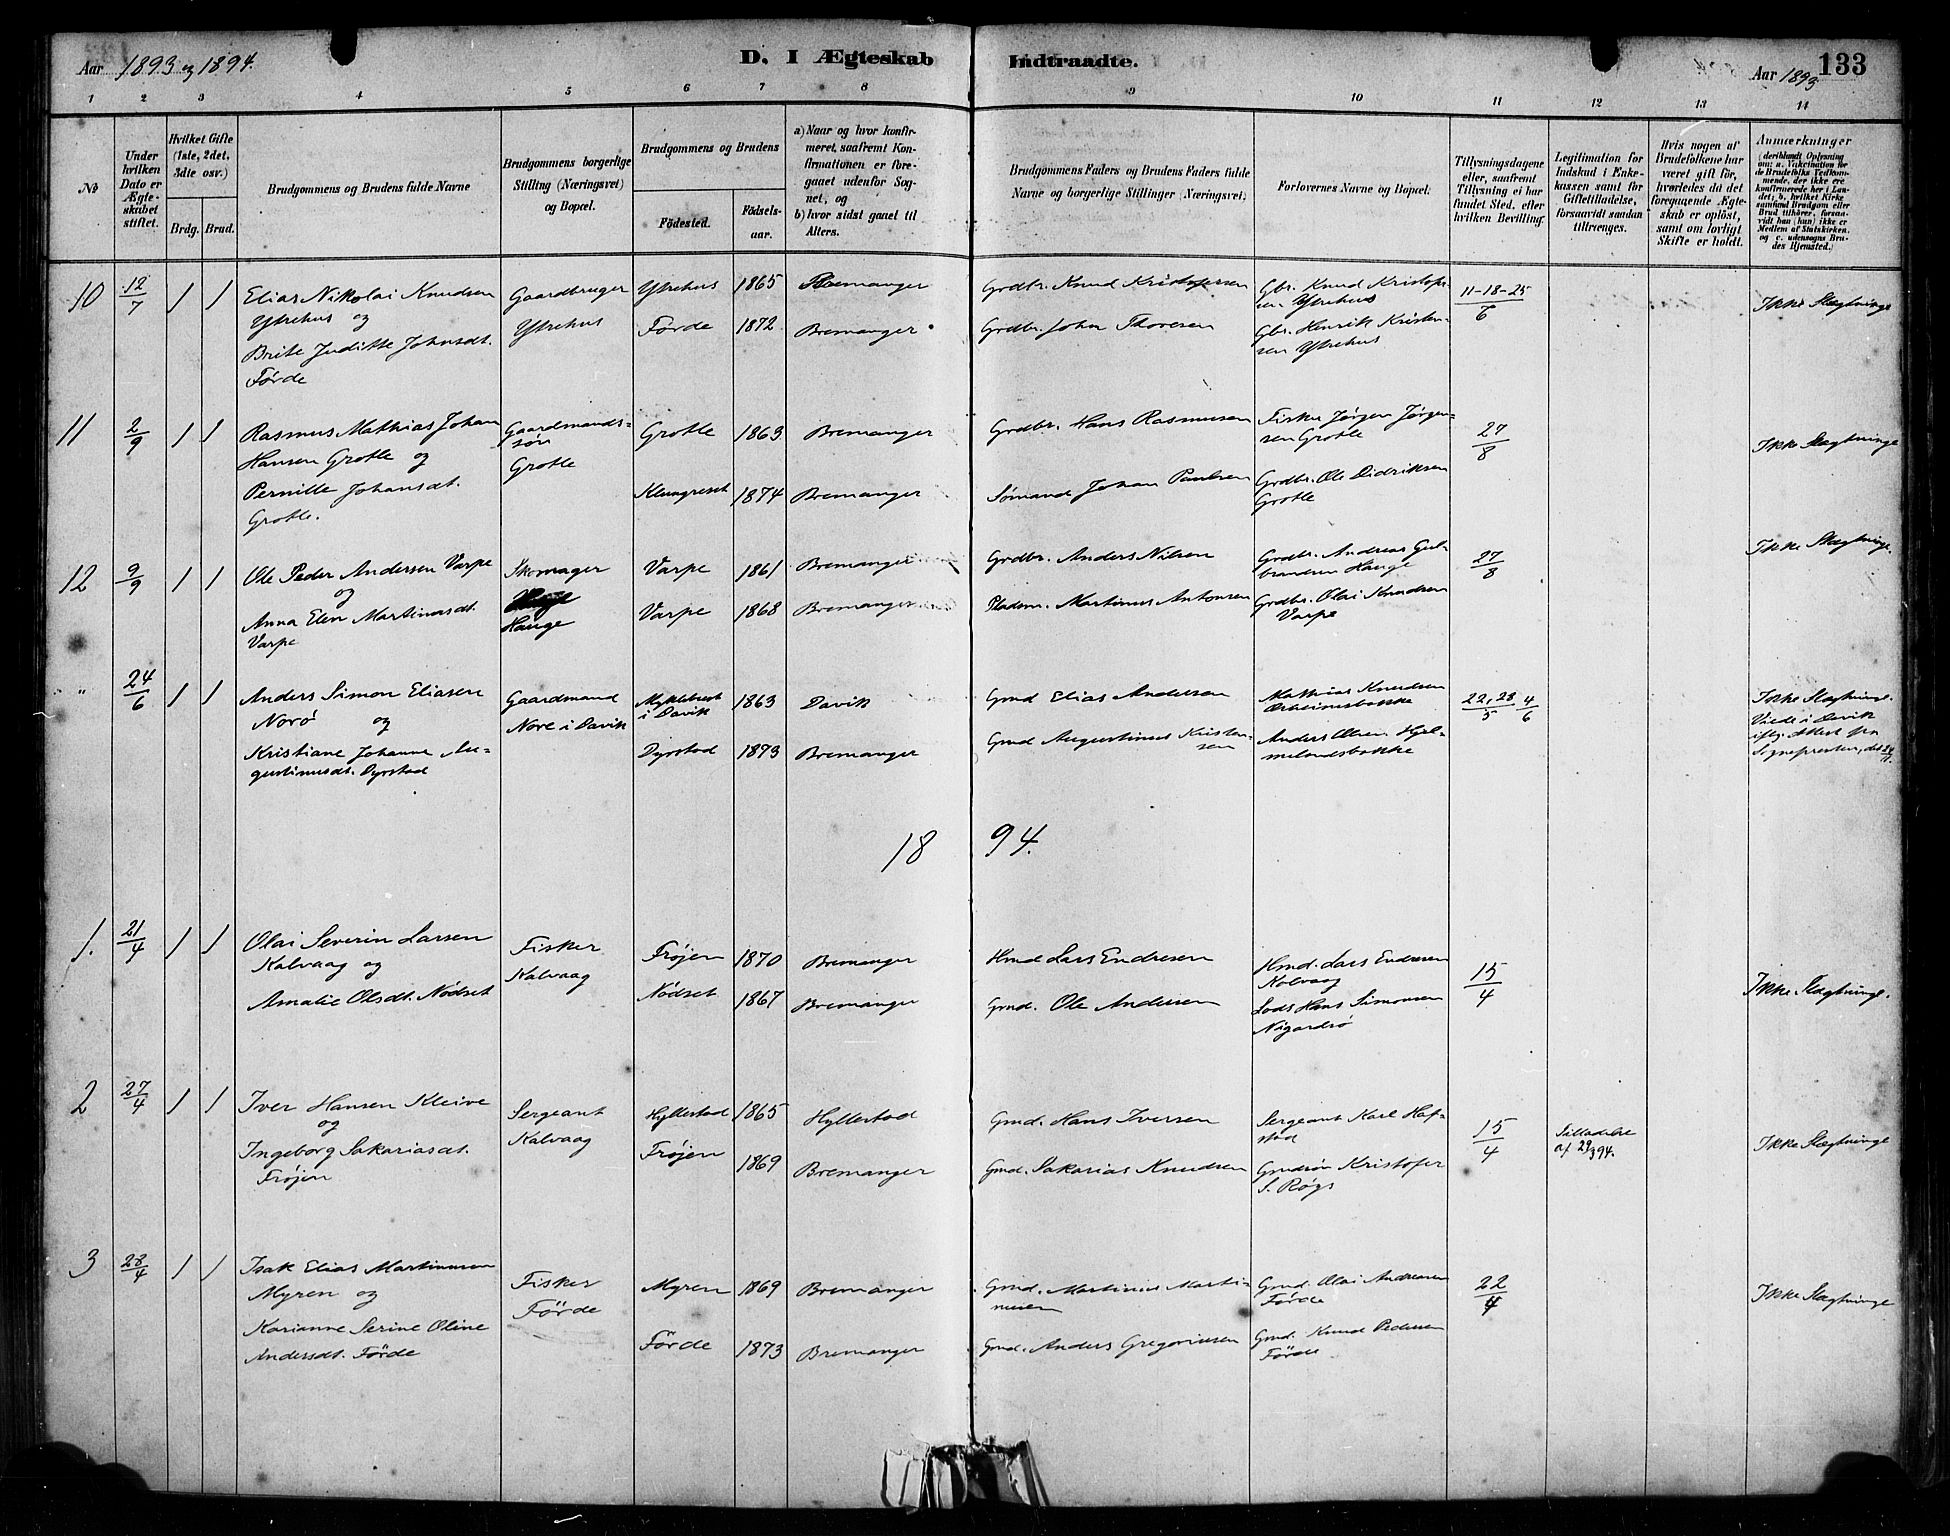 Aar 1893 og 1894.
D. I Ægteskab Indtraadte.
Aar 1893
133
1 2 3 4 5 6 7 8 9 10 11 12 13 14
No
Under hvilken Dato er Ægteskabet stiftet.
Hvilket Gifte (1ste, 2det, 3die osv.)
Brdg. Brud.
Brudgommens og Brudens fulde Navne
Brudgommens borgerlige Stilling (Næringsvei) og Bopæl.
Brudgommens og Brudens
Fødested.
Fødselsaar.
a) Naar og hvor konfirmeret, saafremt Konfirmationen er foregaaet udenfor Sognet, og
b) hvor sidst gaaet til Alters.
Brudgommens Faders og Brudens Faders fulde Navne og borgerlige Stillinger (Næringsvei).
Forlovernes Navne og Bopæl.
Tillysningsdagene eller, saafremt Tillysning ei har fundet Sted, efter hvilken Bevilling.
Legitimation for Indskud i Enkekassen samt for Giftetilladelse, forsaavidt saadan tiltrænges.
Hvis nogen af Brudefolkene har været gift før, hvorledes da det foregaaende Ægteskab er opløst, samt om lovligt Skifte er holdt.
Anmærkninger
(deriblandt Oplysning om: a. Vakcination for de Brudefolks Vedkommende, der ikke ere konfirmerede her i Landet; b. hvilket Kirkesamfund Brudgom eller Brud tilhører, forsaavidt han (hun) ikke er Medlem af Statskirken, og c. udensogns Brudes Hjemsted.)
10 12/7 1 1 Elias Nikolai Knudsen Gaardbruger Ytrehus 1865 Bremanger Grdbr. Knud Kristofersen Gbr. Knud Kristofersen Ytrehus 11-18-25/6 Ikke Slægtninge
Ytrehus og Ytrehus
Brite Juditte Johnsdt. Førde 1872 Bremanger Grdbr. John Thoresen Gbr. Henrik Kristensen Ytrehus
Førde
11 2/9 1 1 Rasmus Mathias Johan Gaardmandssøn Grotle 1863 Bremanger Grdbr. Hans Rasmusen Fisker Jørgen Jørgensen Grotle 27/8 Ikke Slægtninge
Hansen Grotle og Grotle
Pernille Johansdt. Klungreset 1874 Bremanger Sømand Johan Paulsen Grdbr. Ole Didriksen
Grotle. Grotle
12 9/9 1 1 Ole Peder Andersen Varpe Skomager Varpe 1861 Bremanger Grdbr. Anders Nilsen Grdbr. Andreas Gulbrandsen Hauge 27/8 Ikke Slægtninge.
og
Anna Elen Martinusdt. Hauge Varpe 1868 Bremanger Pladsm. Martinus Antonsen Grdbr. Olai Knudsen
Varpe Varpe
" 24/6 1 1 Anders Simon Eliasen Gaardmand Myklebust i Davik 1863 Davik Gmd Elias Andersen Mathias Knudsen 22, 28/5 - 4/6 Ikke Slægtninge.
Norø og Nore i Davik Viede i Davik
Kristiane Johanne Augustinusdt. Dyrstad Dyrstad 1873 Bremanger Gmd Augustinus Kristensen Anders Olsen Hjelmelandsbakke iflg. Attest fra Sognepresten, dat.
18 94.
1. 21/4 1 1 Olai Severin Larsen Fisker Frøjen 1870 Bremanger Hmd Lars Endresen Hmd. Lars Endresen 15/4 Ikke Slægtninge.
Kalvaag og Kalvaag Kalvaag
Amalie Olsdt. Nødset Nødset 1867 Bremanger Gmd. Ole Andersen Lods Hans Simonsen
Nigardsø
2 27/4 1 1 Iver Hansen Kleive Sergeant Hyllestad 1865 Hyllestad Gmd. Hans Iversen Sergeant Karl Hafstad 15/4 Tilladelse af 29/3 94. Ikke Slægtninge
og Kalvaag
Ingeborg Sakariasdt. Frøjen 1869 Bremanger Gmd. Sakarias Knudsen Gmdsøn Kristofer
Frøjen S. Røgs
3 28/4 1 1 Isak Elias Martinusen Fisker Myren 1869 Bremanger Gmd. Martinus Martinusen Gmd. Olai Andreasen 22/4 Ikke Slægtninge
Myren og Førde Førde
Karianne Serine Oline Førde 1873 Bremanger Gmd. Anders Gregoriusen Gmd. Knud Pedersen
Andersdt. Førde Førde